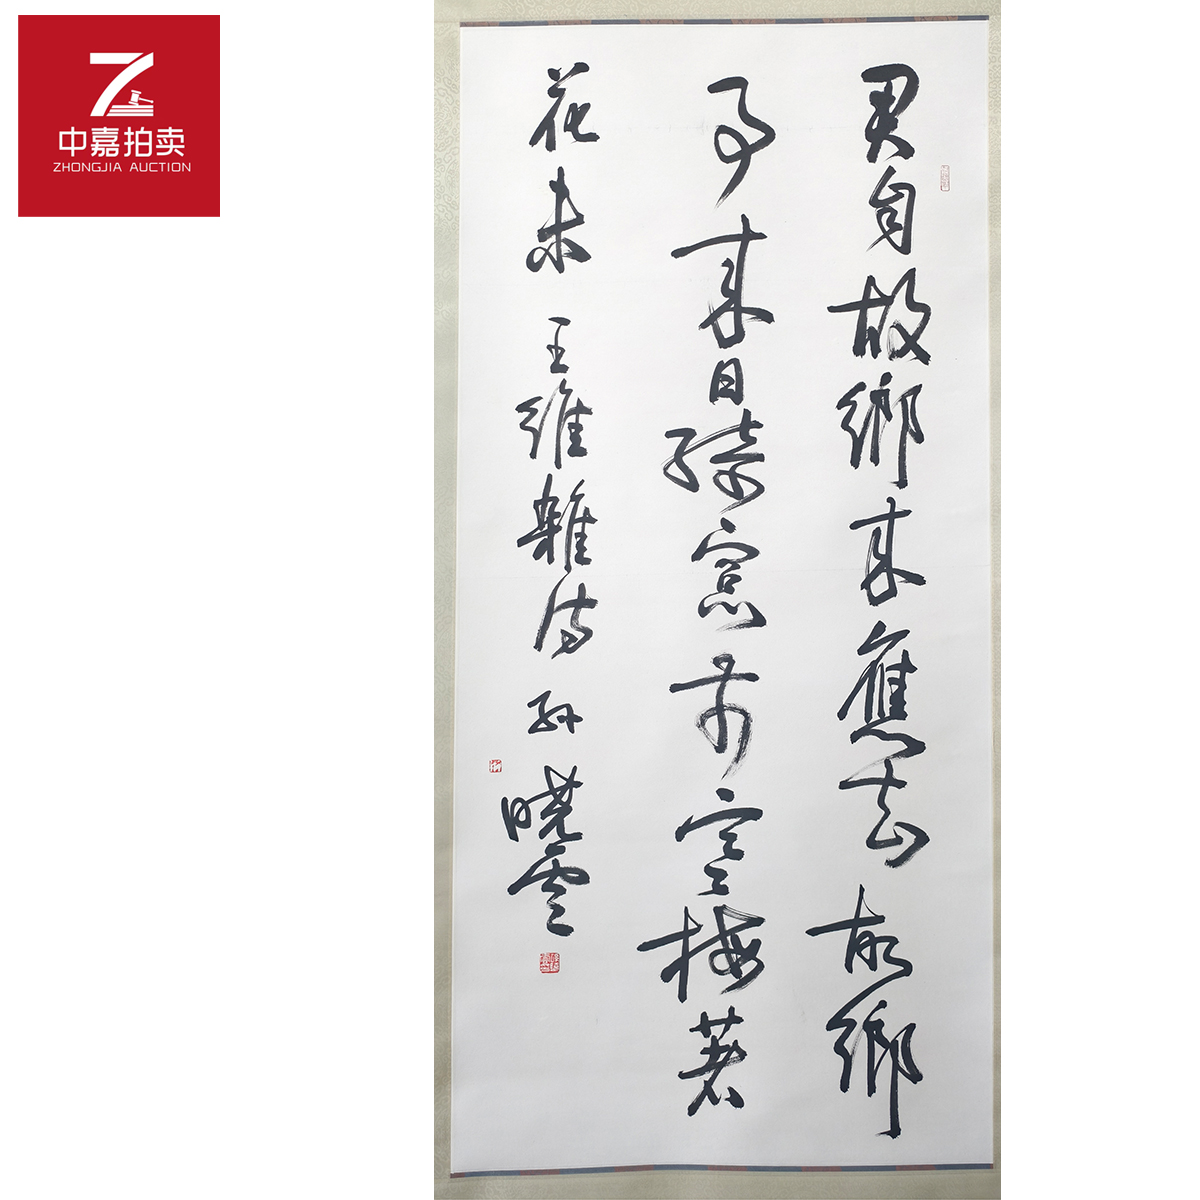 中嘉拍卖
ZHONGJIA AUCTION
君自故鄉來應知故鄉
事來日綺窓前寒梅著
花未 王維雜詩 孫曉雲